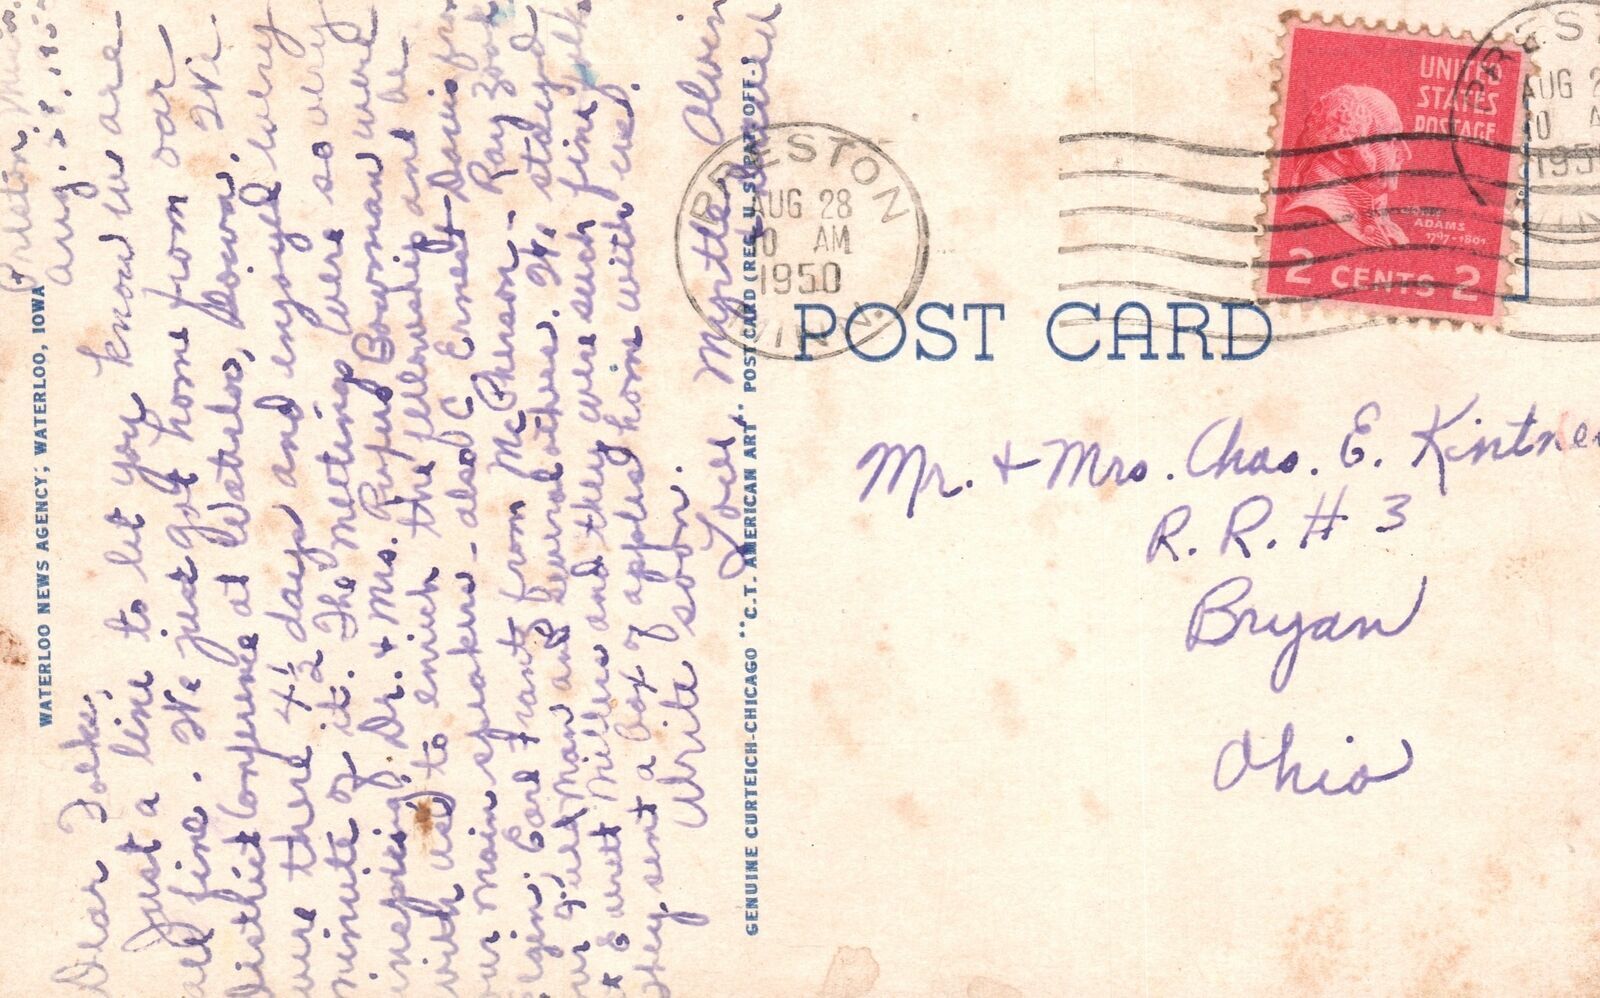 Preston, Minn.
Aug. 28, 1950
Dear Folks,
Just a line to let you know we are
all fine. We just got home from our
District Conference at Waterloo, Iowa. We
were there 4½ days and enjoyed every
minute of it. The meetings were so very
inspiring, Dr. & Mrs. Rufus Bowman were
with us to enrich the fellowship and be
our main speakers - also C Ernest Davis from
Elgin; Earl Frantz from McPherson - Ray Zook
our field Man and several others. We stayed
at Everett Millers and they were such fine folks
They sent a box of apples home with us.
Write soon.
Love, Myrtle, Alvin
WATERLOO NEWS AGENCY; WATERLOO, IOWA
GENUINE CURTEICH-CHICAGO "C.T. AMERICAN ART" POST CARD (REG. U.S. PAT. OFF.)
PRESTON
AUG 28
10 AM
1950
MINN.
UNITED
STATES
POSTAGE
JOHN
ADAMS
1797-1801
2 CENTS 2
PREST
AUG 2
10 A
195
MINN
POST CARD
Mr. & Mrs. Chas. E. Kintner
R. R. # 3
Bryan
Ohio